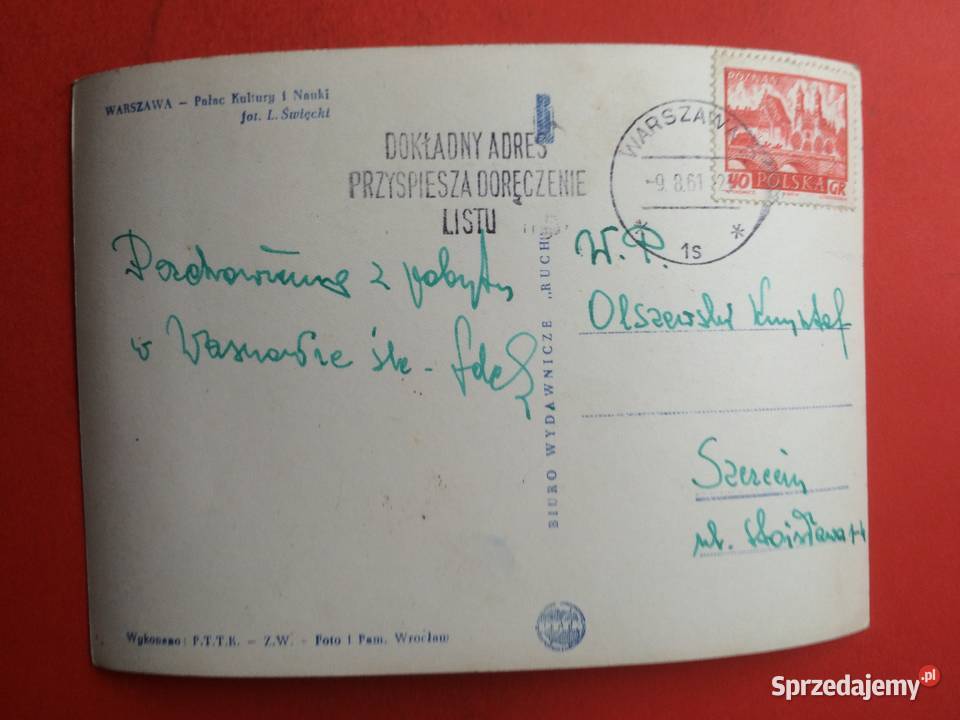 WARSZAWA — Pałac Kultury i Nauki
fot. L. Święcki
DOKŁADNY ADRES
PRZYSPIESZA DORĘCZENIE
LISTU
WARSZAWA
-9.8.61
1s
POZNAŃ
40 POLSKA GR
Pozdrowienia z pobytu
w
W.P.
Olszewski Krzysztof
Szczecin
ul.
BIURO WYDAWNICZE „RUCH"
Wykonano: P.T.T.K. — Z.W. — Foto i Pam. Wrocław
Sprzedajemy.pl